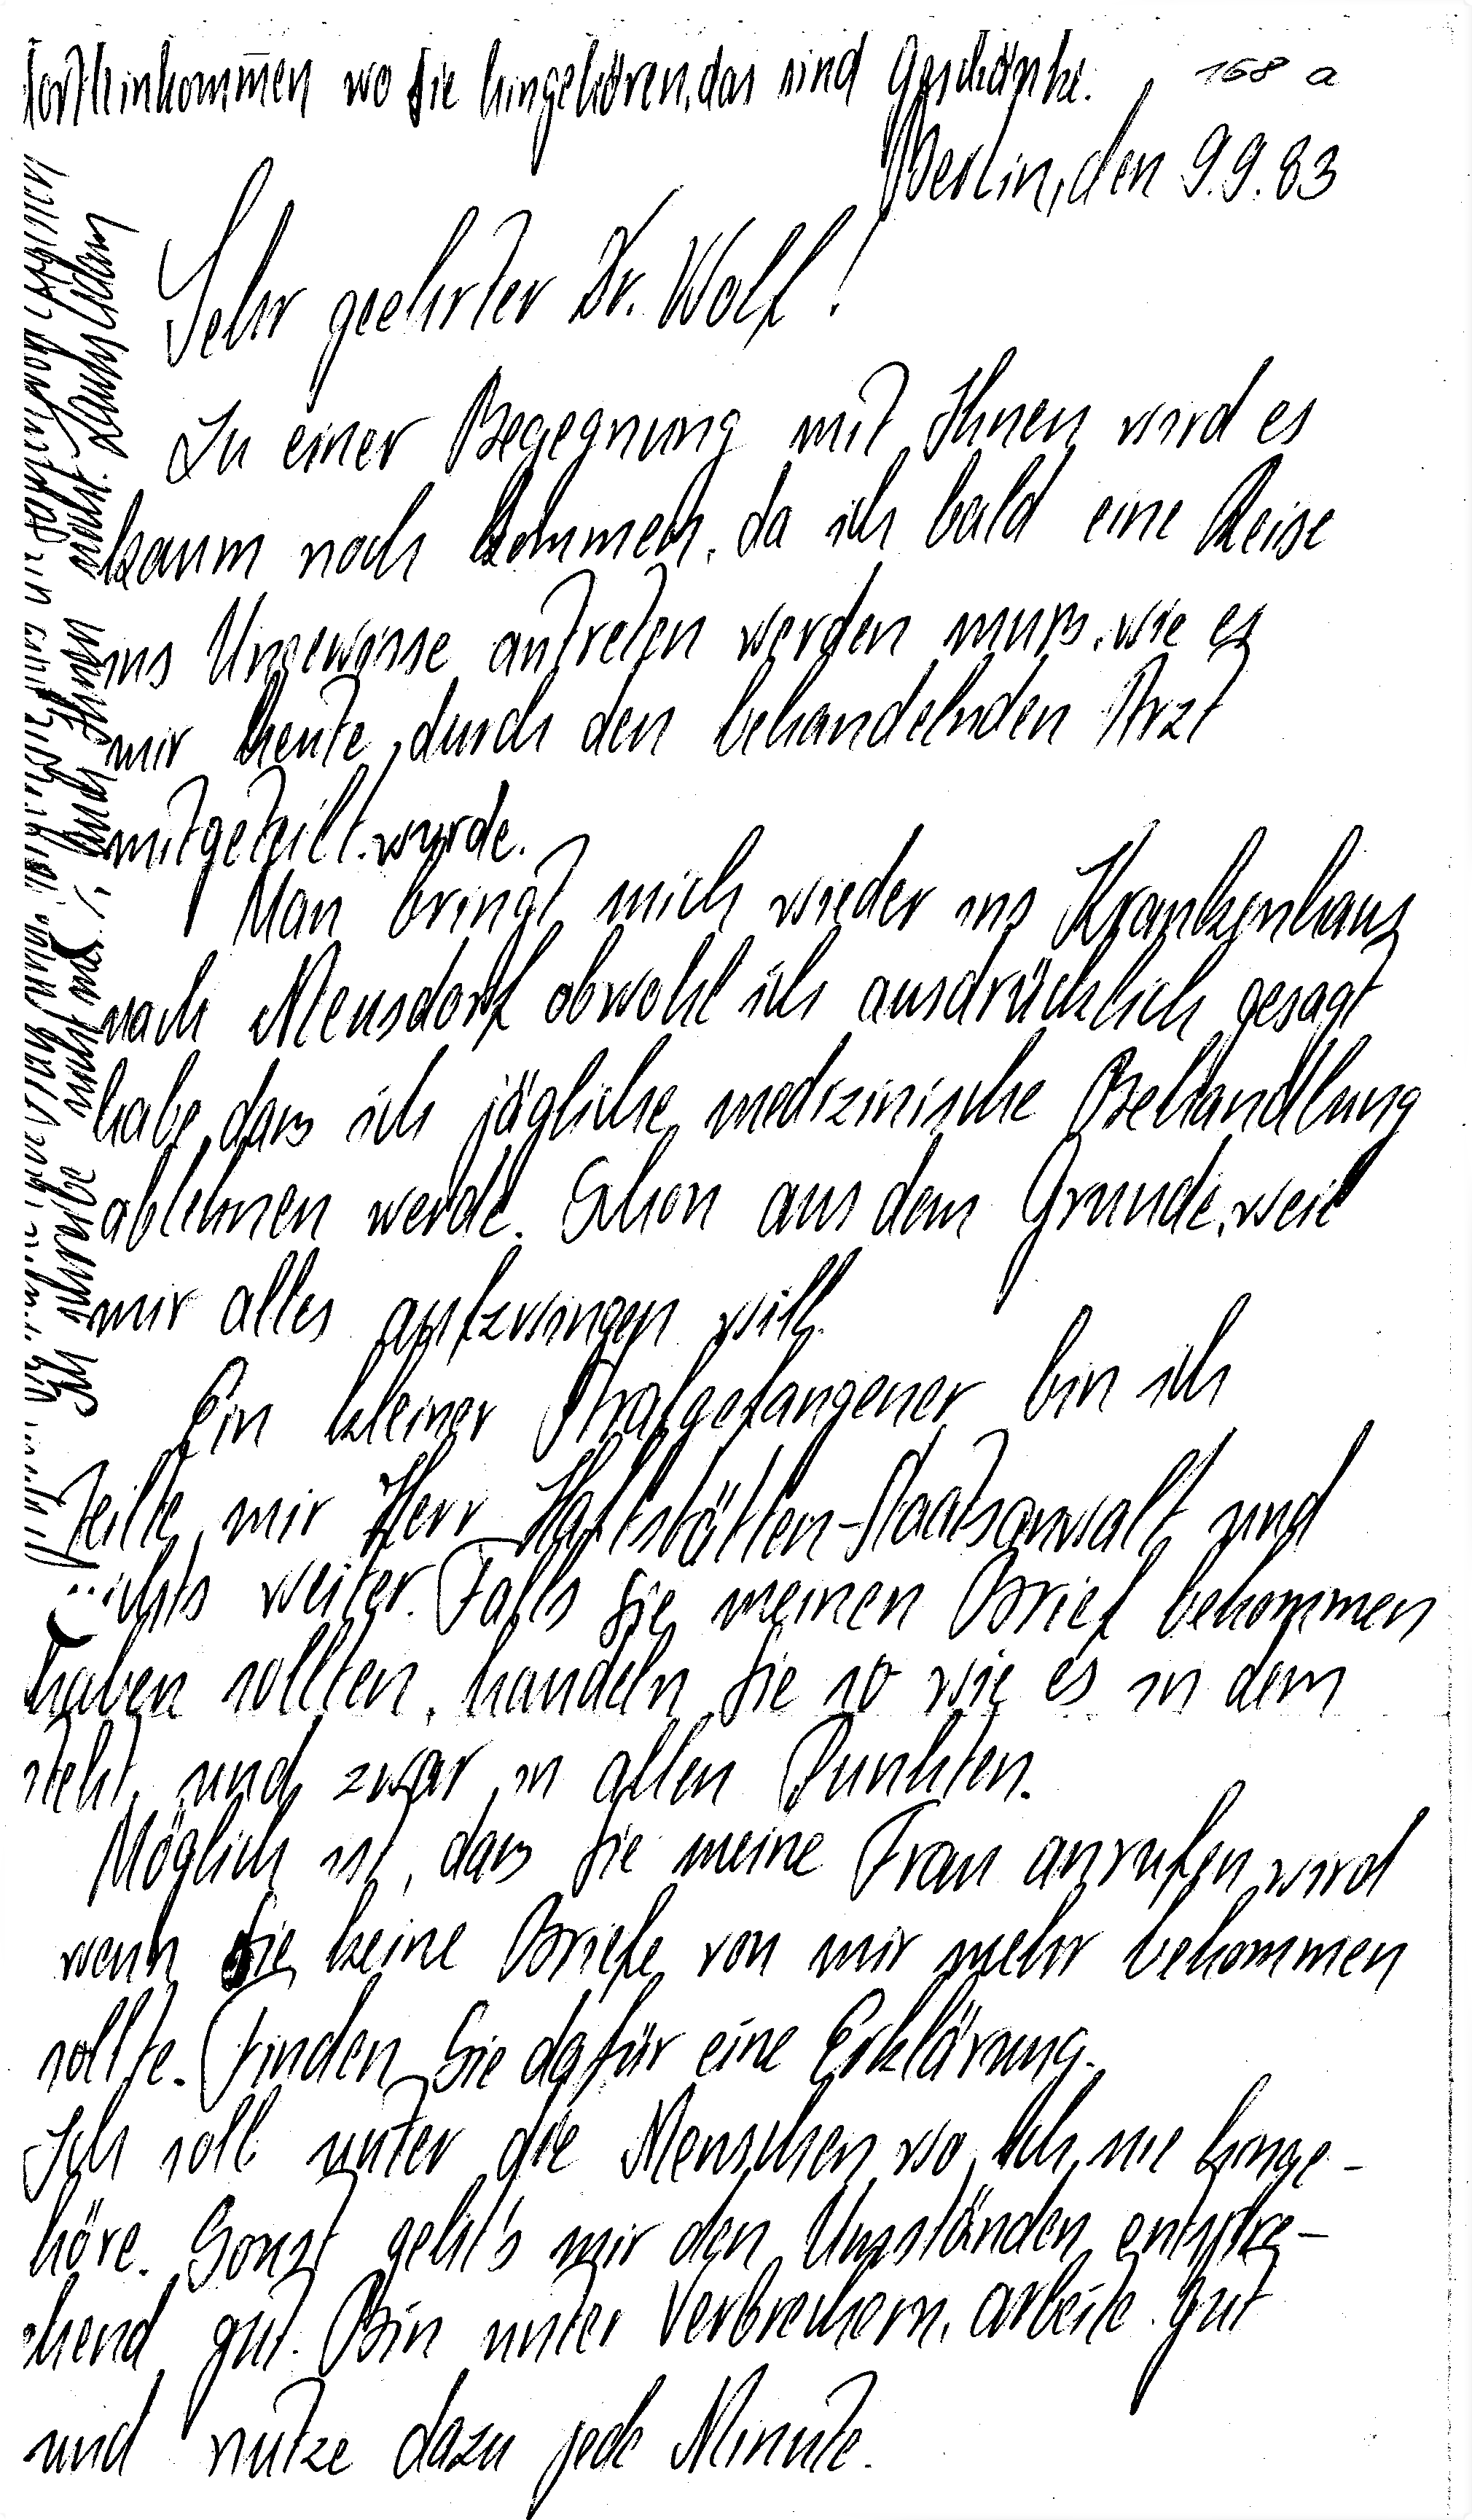 dorthinkommen wo sie hingehören, das sind Geschöpfe.
168 a
Berlin, den 9.9.83
Sehr geehrter Dr. Wolf!
Zu einer Begegnung mit Ihnen wird es
kaum noch kommen, da ich bald eine Reise
ins Ungewisse antreten werden muss, wie es
mir heute, durch den behandelnden Arzt
mitgeteilt wurde.
Man bringt mich wieder ins Krankenhaus
nach Meusdorf obwohl ich ausdrücklich gesagt
habe, dass ich jägliche medizinische Behandlung
ablehnen werde. Schon aus dem Grunde, weil
mir alles aufzwingen will.
Ein kleiner Strafgefangener bin ich
teilte mir Herr Haftstätten-Staatsanwalt und
nichts weiter. Falls Sie meinen Brief bekommen
haben sollten, handeln Sie so wie es in dem
steht und zwar in allen Punkten.
Möglich ist, dass Sie meine Frau anrufen wird
wenn Sie keine Briefe von mir mehr bekommen
sollte. Finden Sie dafür eine Erklärung.
Ich soll unter die Menschen wo ich nie hinge-
höre. Sonst geht's mir den Umständen entspre-
chend gut. Bin unter Verbrechern, arbeite gut
und nutze dazu jede Minute.
Ich schreibe nicht mal, auch Ihnen nicht.